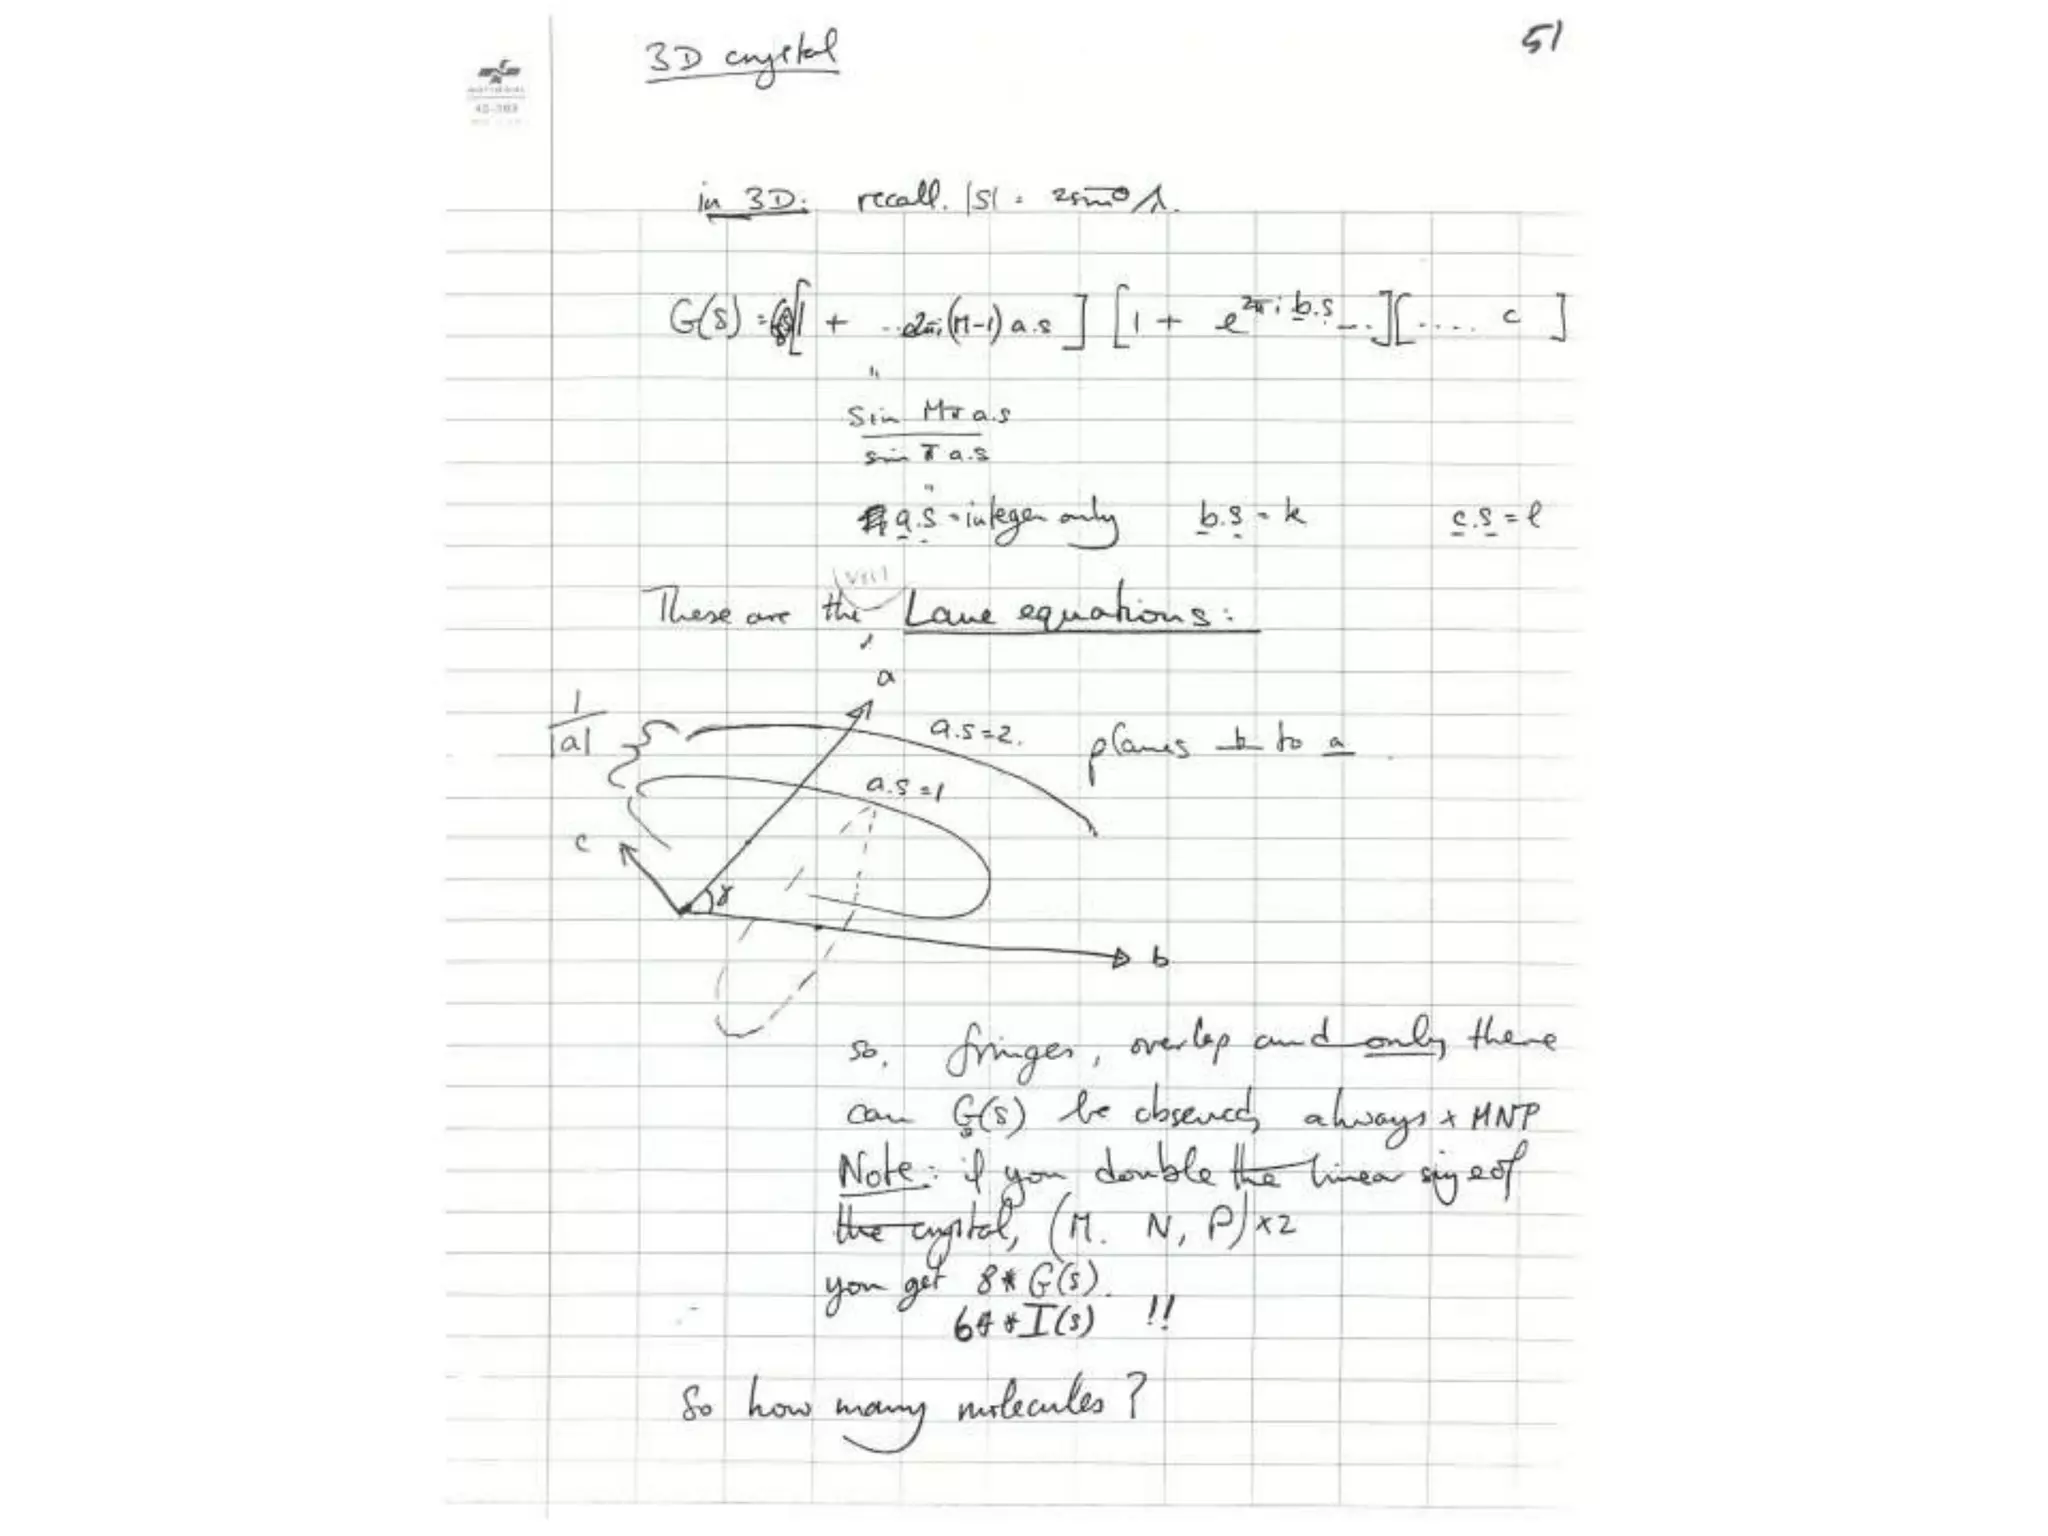 3D crystal
51
NATIONAL
42-382
in 3D: recall. |S| = 2sinθ/λ.
G(s) = [1 + ... e2πi(M-1) a.s ] [1 + e^2πi b.s ...][.... c ]
"
sin Mπ a.s
sin π a.s
"
a.s = integer only b.s = k c.s = l
These are the Laue equations:
a
1
|a|
a.s=2.
planes to a.
a.s=1
c
γ
b
so, fringes, overlap and only there
can G(s) be observed, always x MNP
Note: if you double the linear size of
the crystal, (M. N, P) x2
you get 8* G(s).
64 * I(s) !!
So how many molecules?